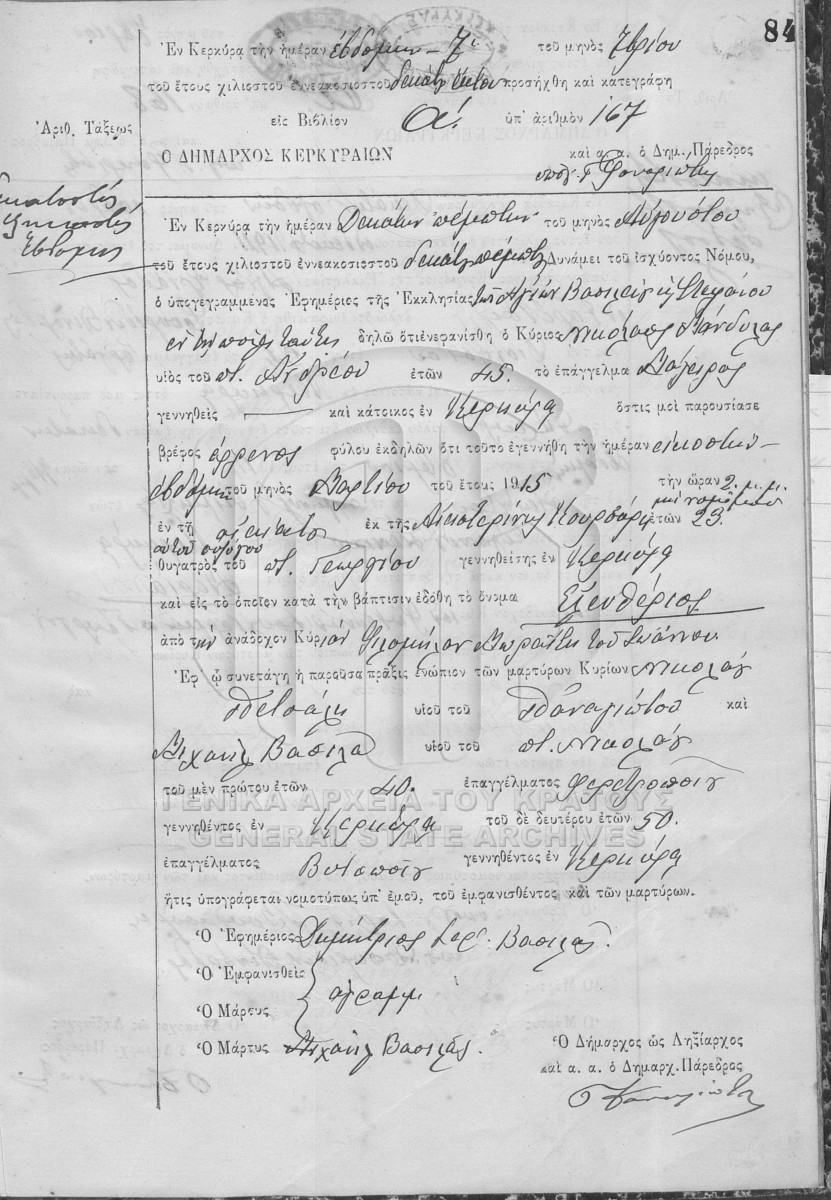 84
Ἐν Κερκύρᾳ τὴν ἡμέραν ἑβδόμην - 7ην τοῦ μηνὸς 7βρίου
τοῦ ἔτους χιλιοστοῦ ἐννεακοσιοστοῦ δεκάτου ἕκτου προσήχθη καὶ κατεγράφη
εἰς Βιβλίον Α΄. ὑπ' ἀριθμὸν 167
Ἀριθ. Τάξεως
Ὁ ΔΗΜΑΡΧΟΣ ΚΕΡΚΥΡΑΙΩΝ καὶ α. α. ὁ Δημ. Πάρεδρος
ἑκατοστὸς
ἑξηκοστὸς
ἕβδομος
Ἐν Κερκύρᾳ τὴν ἡμέραν Δεκάτην πέμπτην τοῦ μηνὸς Αὐγούστου
τοῦ ἔτους χιλιοστοῦ ἐννεακοσιοστοῦ δεκάτου πέμπτου Δυνάμει τοῦ ἰσχύοντος Νόμου,
ὁ ὑπογεγραμμένος Ἐφημέριος τῆς Ἐκκλησίας τῶν Ἁγίων Βασιλείου κ Στεφάνου
ἐν τῇ πόλει ταύτῃ δηλῶ ὅτι ἐνεφανίσθη ὁ Κύριος Νικόλαος
υἱὸς τοῦ π. Ἀνδρέου ἐτῶν 45. τὸ ἐπάγγελμα Μάγειρος
γεννηθεὶς — καὶ κάτοικος ἐν Κερκύρᾳ ὅστις μοὶ παρουσίασε
βρέφος ἄρρενος φύλου ἐκδηλῶν ὅτι τοῦτο ἐγεννήθη τὴν ἡμέραν εἰκοστὴν
ἑβδόμην τοῦ μηνὸς Μαρτίου τοῦ ἔτους 1915 τὴν ὥραν 2. μ. μ.
ἐν τῇ οἰκίᾳ ἐκ τῆς Αἰκατερίνης ἐτῶν 23.
αὐτοῦ συζύγου
θυγατρὸς τοῦ π. Γεωργίου γεννηθείσης ἐν Κερκύρᾳ
καὶ εἰς τὸ ὁποῖον κατὰ τὴν βάπτισιν ἐδόθη τὸ ὄνομα Ἐλευθέριος
ἀπὸ τὴν ἀνάδοχον Κυρίαν τοῦ Ἰωάννου
Ἐφ' ᾧ συνετάγη ἡ παροῦσα πρᾶξις ἐνώπιον τῶν μαρτύρων Κυρίων Νικολάου
Πετσάλη υἱοῦ τοῦ Παναγιώτου καὶ
Μιχαὴλ Βασιλᾶ υἱοῦ τοῦ π. Νικολάου
τοῦ μὲν πρώτου ἐτῶν 40. ἐπαγγέλματος φερετροποιοῦ
ΓΕΝΙΚΑ ΑΡΧΕΙΑ ΤΟΥ ΚΡΑΤΟΥΣ
γεννηθέντος ἐν Κερκύρᾳ τοῦ δὲ δευτέρου ἐτῶν 50.
GENERAL STATE ARCHIVES
ἐπαγγέλματος Βυτοποιοῦ γεννηθέντος ἐν Κερκύρᾳ
ἥτις ὑπογράφεται νομοτύπως ὑπ' ἐμοῦ, τοῦ ἐμφανισθέντος καὶ τῶν μαρτύρων.
Ὁ Ἐφημέριος Δημήτριος Ἱερ. Βασιλᾶς.
Ὁ Ἐμφανισθεὶς
ἀγράμμ
Ὁ Μάρτυς
Ὁ Μάρτυς Μιχαὴλ Βασιλᾶς.
Ὁ Δήμαρχος ὡς Ληξίαρχος
καὶ α. α. ὁ Δημαρχ. Πάρεδρος